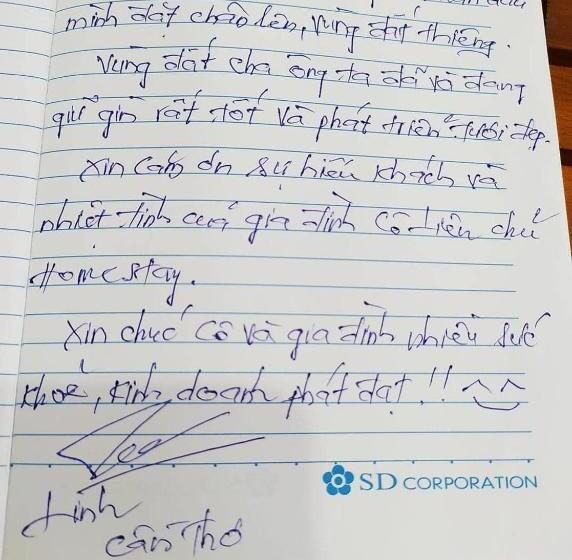 mình đất chào lên, vùng đất thiêng.
Vùng đất cha ông ta đã và đang
giữ gìn rất tốt và phát triển tươi đẹp.
Xin cảm ơn sự hiếu khách và
nhiệt tình của gia đình cô Liên chủ
Homestay.
Xin chúc cô và gia đình nhiều sức
khoẻ, kinh doanh phát đạt!! ^^
SD CORPORATION
Cần Thơ